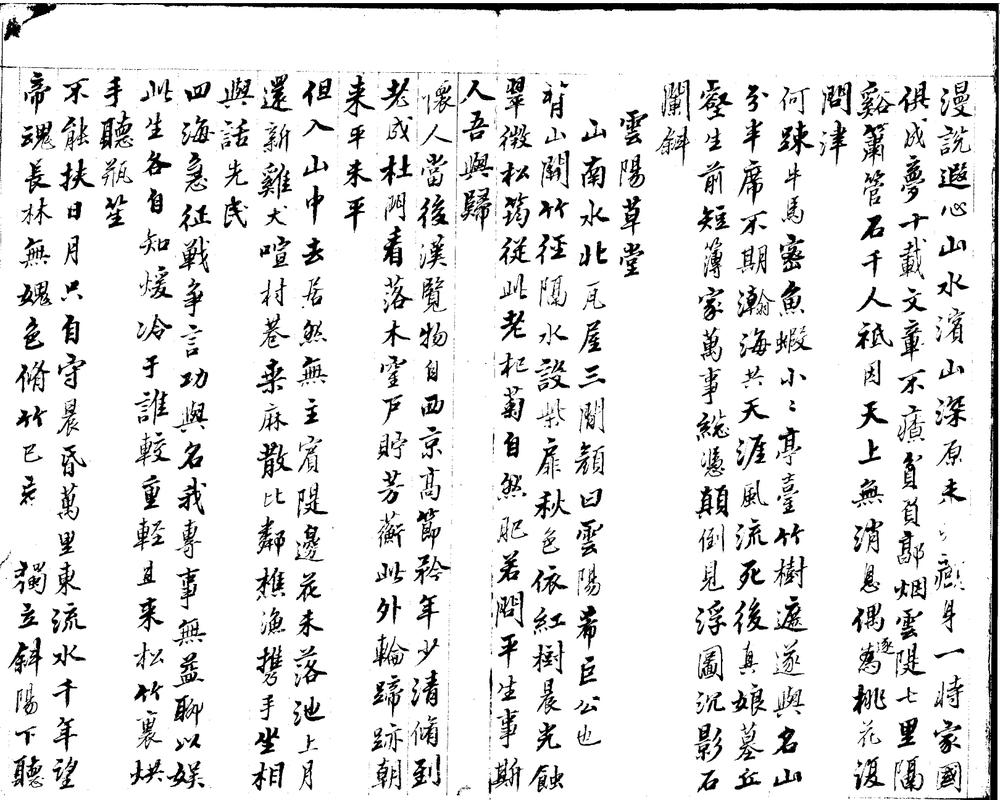 漫說遐心山水濱山深原未癩身一時家國
俱成夢十載文章不療貧負郭烟雲隄七里隔
谿簫管石千人祗因天上無消息偶逐桃花復
問津
何疎牛馬密魚蝦小小亭臺竹樹遮遂與名山
分半席不期瀚海共天涯風流死後真娘墓丘
壑生前短簿家萬事総憑顛倒見浮圖沉影石
闌斜
雲陽草堂
山南水北瓦屋三間額曰雲陽希巨公也
背山關竹徑隔水設柴扉秋色依紅樹晨光蝕
翠微松筠從此老杞菊自然肥若問平生事斯
人吾與歸
懷人當後漢覽物自西京高節矜年少清脩到
老成杜門看落木窒戶貯芳蘅此外輪蹄跡朝
来平未平
但入山中去居然無主賓隄邊花未落池上月
還新雞犬喧村巷桒麻散比鄰樵漁携手坐相
與話先民
四海急征戰争言功與名我專事無益聊以娛
此生各自知煖冷于誰較重輕且来松竹裏烘
手聽瓶笙
不能扶日月只自守晨昏萬里東流水千年望
帝魂長林無媿色脩竹已 獨立斜陽下聽